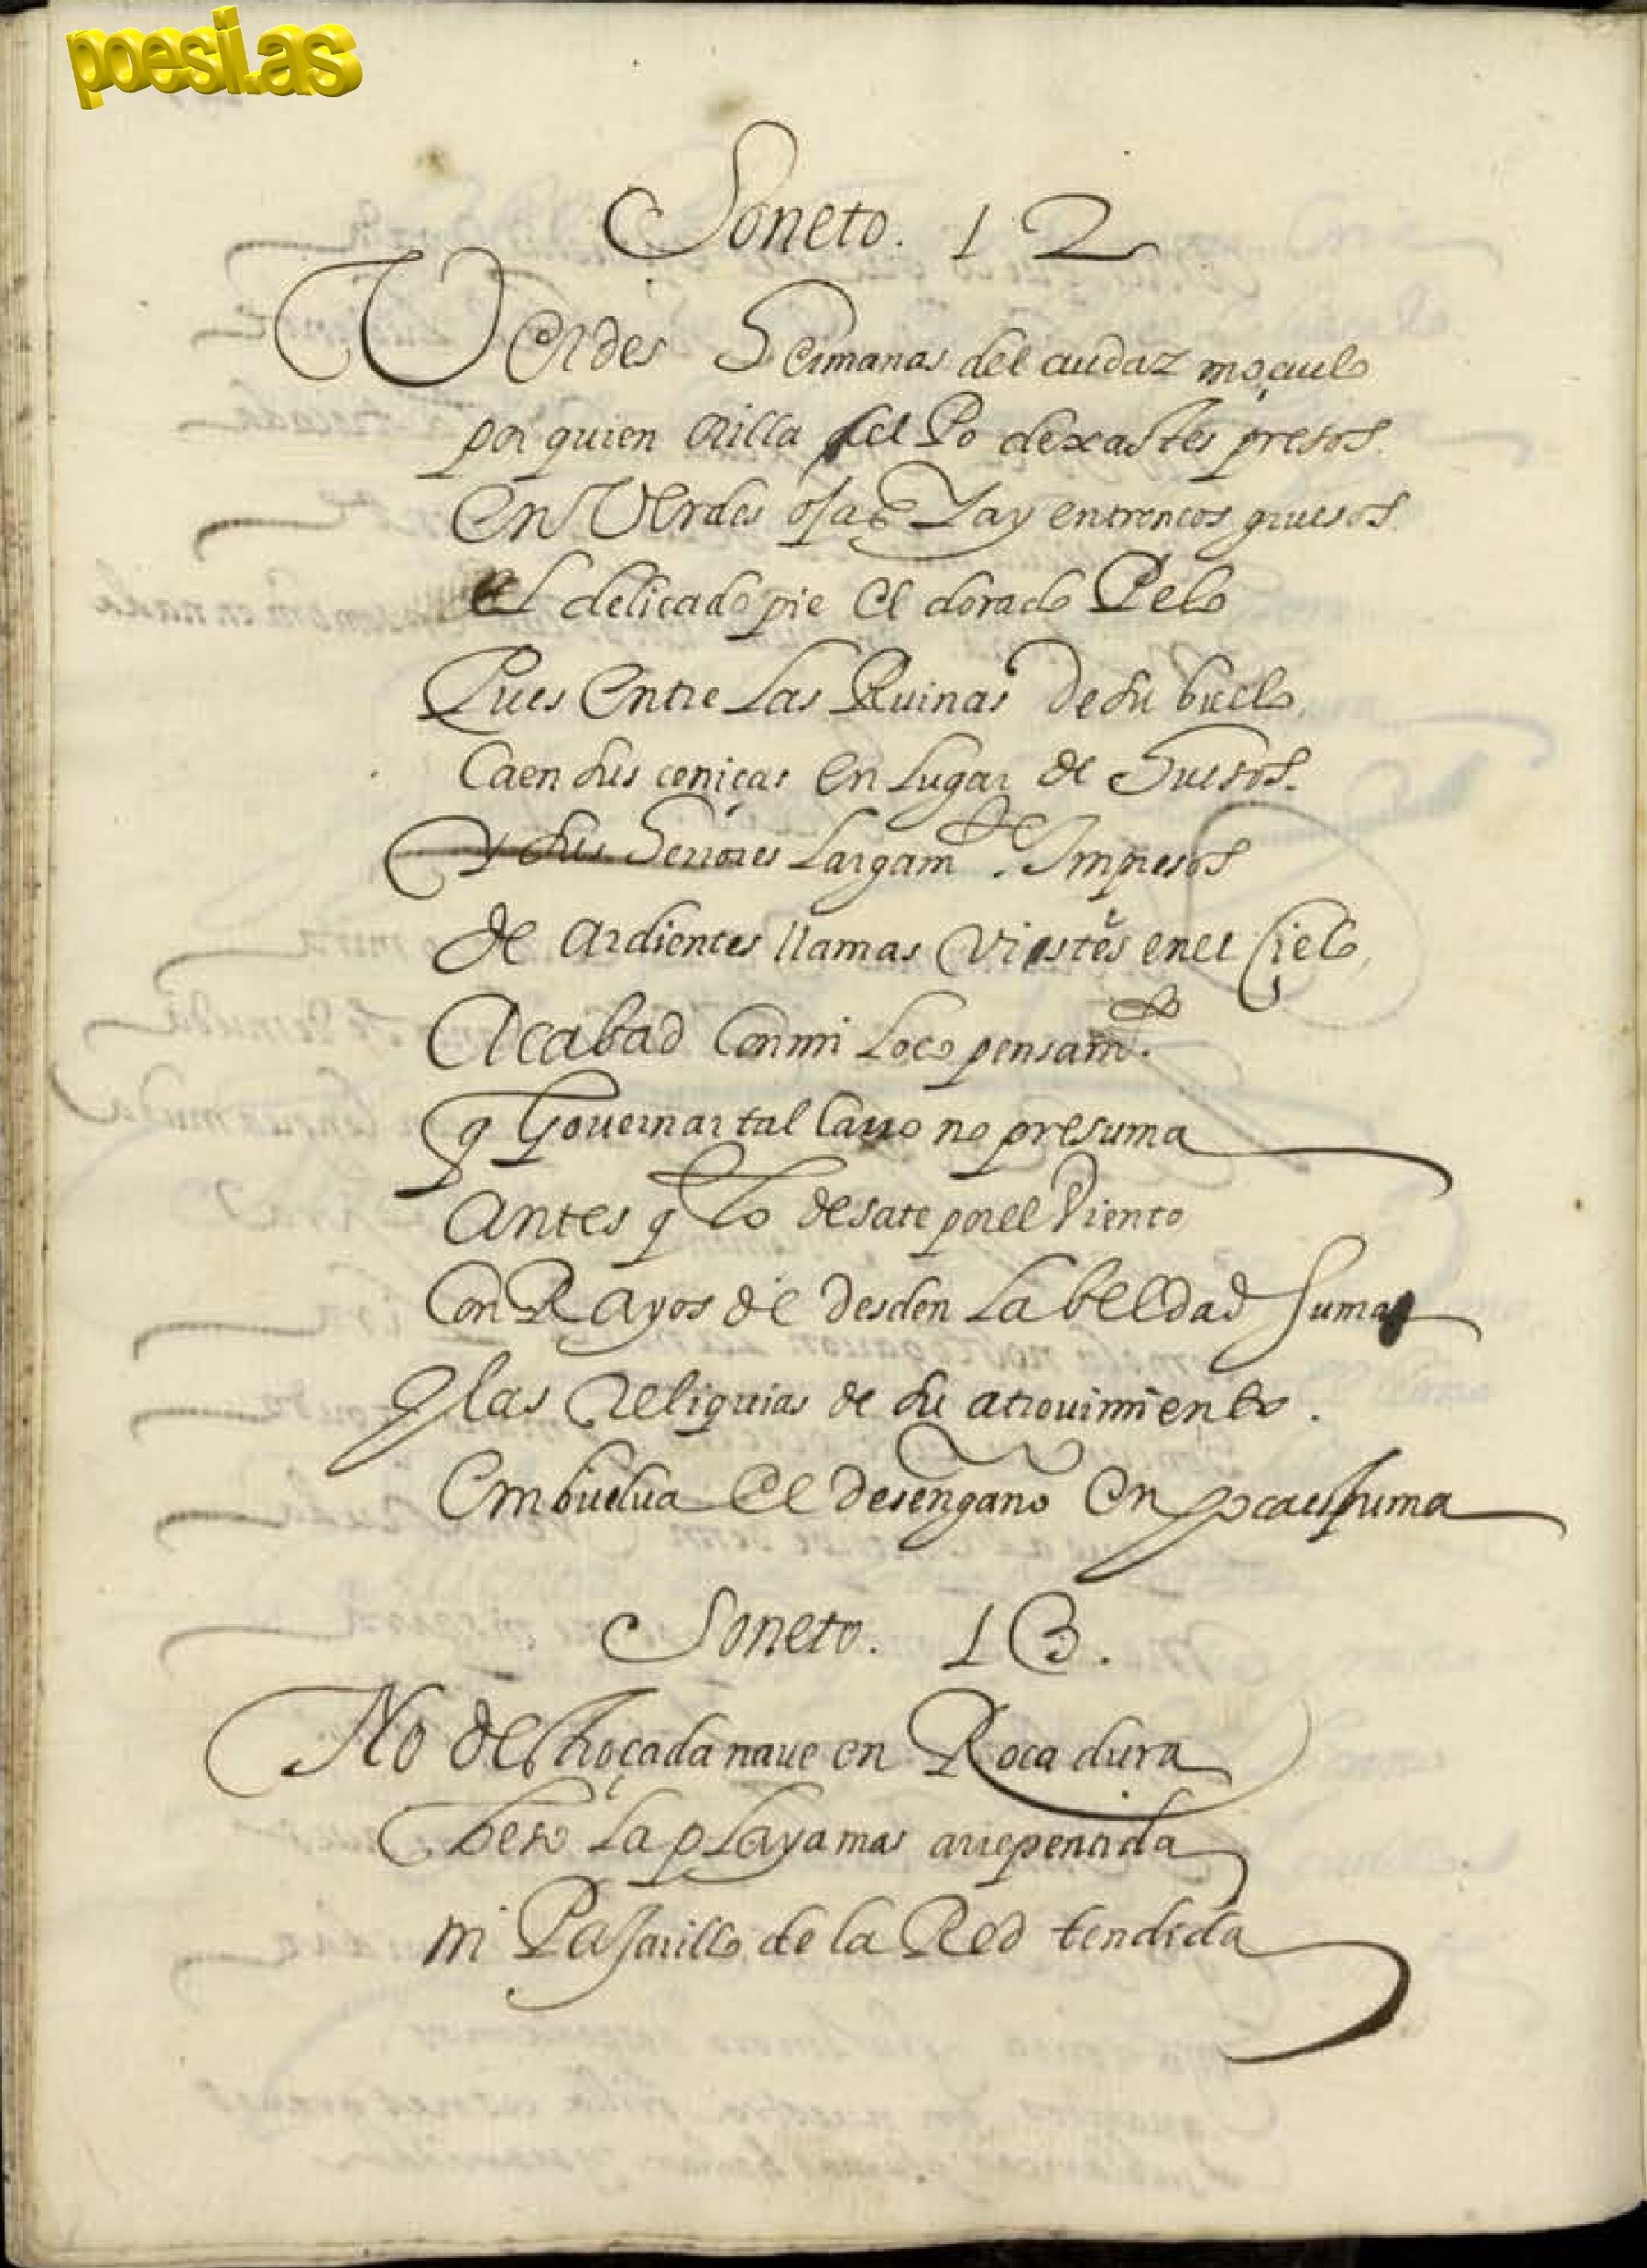 poesi.as
Soneto. 12
Verdes Hermanas del audaz moçuelo
por quien orilla del Po dexastes presos
En Verdes ojas Ya y en troncos gruesos
el delicado pie el dorado Pelo
Pues entre Las Ruinas de su buelo
Caen sus ceniças en Lugar de Huesos
Y sus Herrores Largam.te Impresos
de ardientes llamas vistes en el Cielo
Acabad con mi Loco pensam.to
q Governar tal Carro no presuma
Antes q Lo desate por el Viento
Con Rayos de desden La beldad suma
Y las Reliquias de su atrouimiento.
Embuelua el desengaño en poca espuma
Soneto. 13.
No destroçada naue en Roca dura
beso La pLaya mas arrepentida
ni Pajarillo de la Red tendida